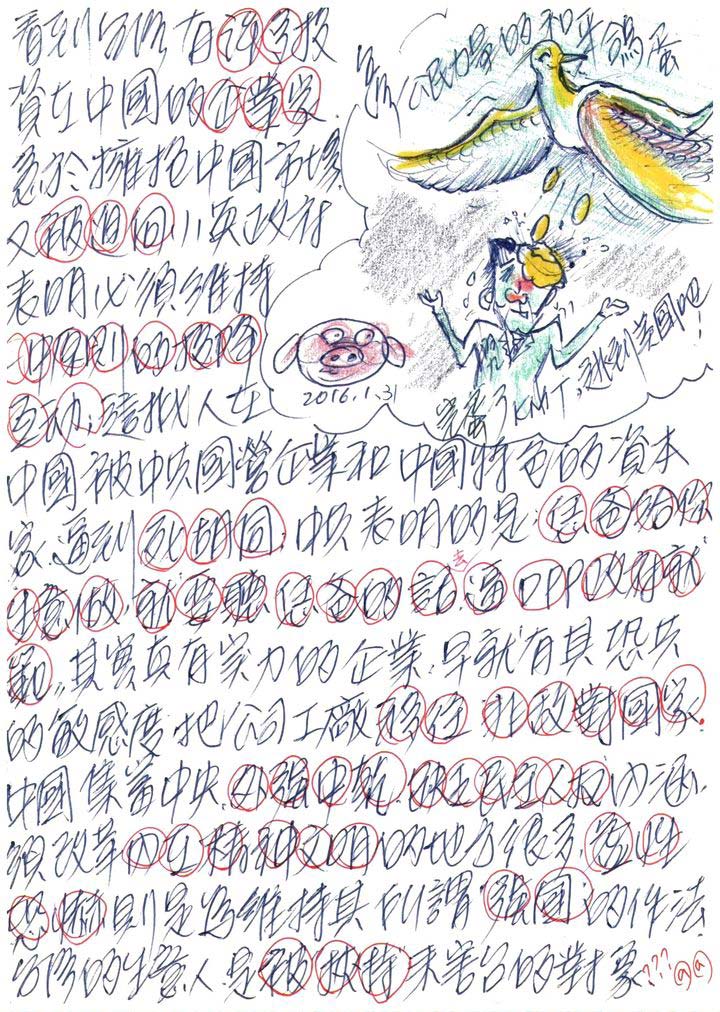 看到台灣有許多投
資在中國的企業家
急於擁抱中國市場
又被迫向小英政府
表明必須維持
中
互動
人在
中國被中共國營企業和中國特色的資本
家逼到死胡同,中共表明的是:
生意做,就要聽 的話去逼DPP政府就
範,其實真有實力的企業,早就有其恐共
的敏感度,把公司工廠移往非敵對國家.
中國集當中央,外強中乾, 民主人權內涵,
須改革內在精神文明的地方很多,
則是為維持其所謂"強國"的作法
台灣的生意人是"被"挾持來害台的對象???
的和平鴿蛋
2016.1.31
完蛋了KMT,逃到美國吧!